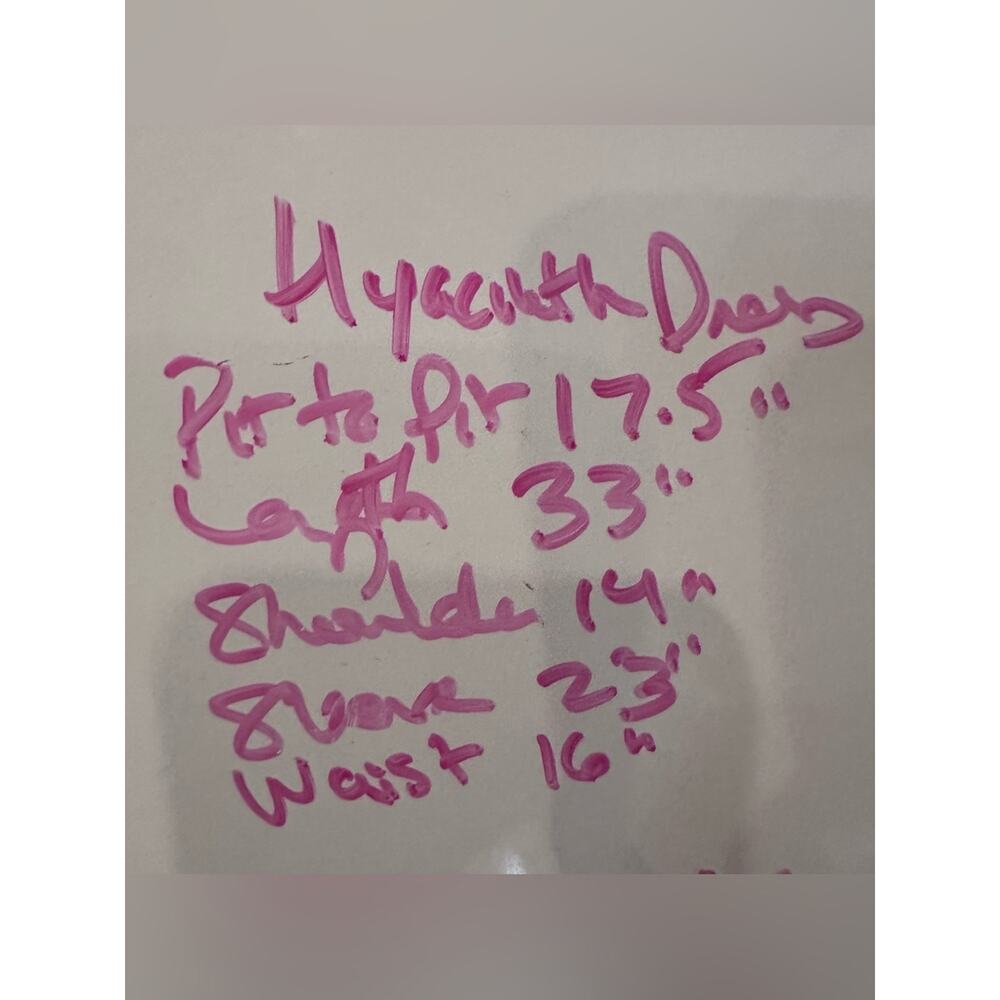 Hyacinth Dress
Pit to Pit 17.5"
Length 33"
Shoulder 14"
Sleeve 23"
Waist 16"